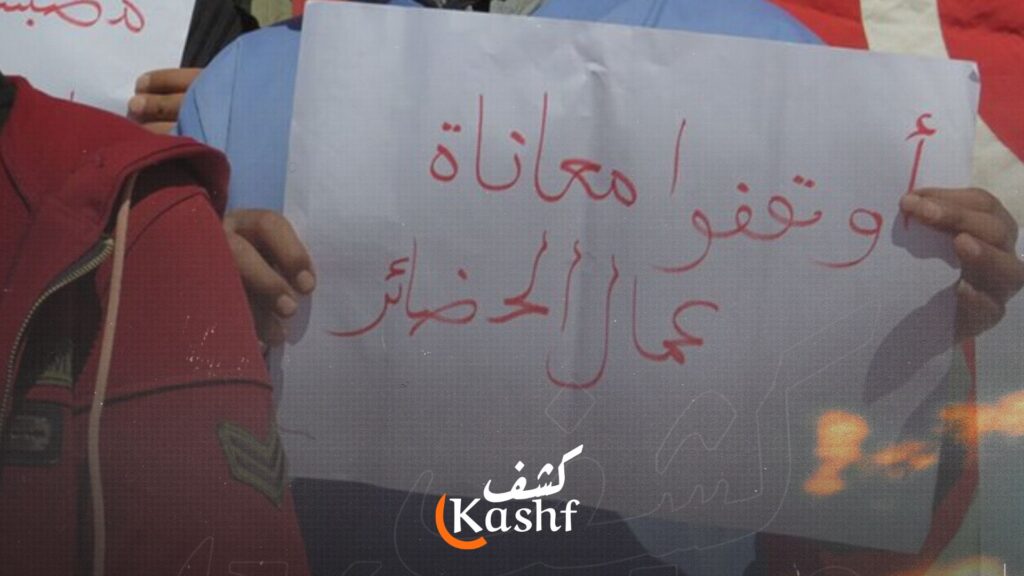 أوتقفوا معاناة
عمال الحضائر
كشف
Kashf